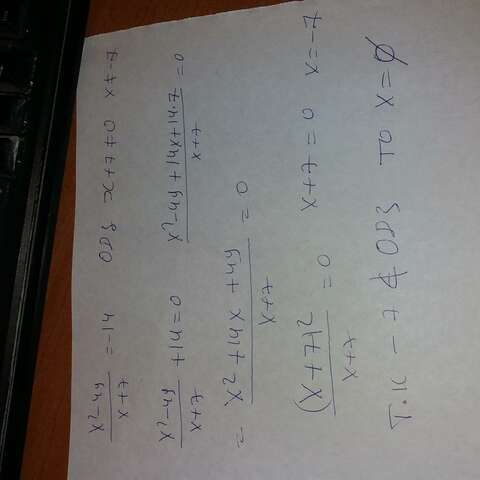 (x²-49)/(x+7) = -14 ОДЗ x+7≠0 x≠-7
(x²-49)/(x+7) + 14 = 0 (x²-49+14x+14·7)/(x+7) = 0
= (x²+14x+49)/(x+7) = 0
(x+7)²/(x+7) = 0 x+7=0 x=-7
Т.к -7 ∉ ОДЗ то x=∅